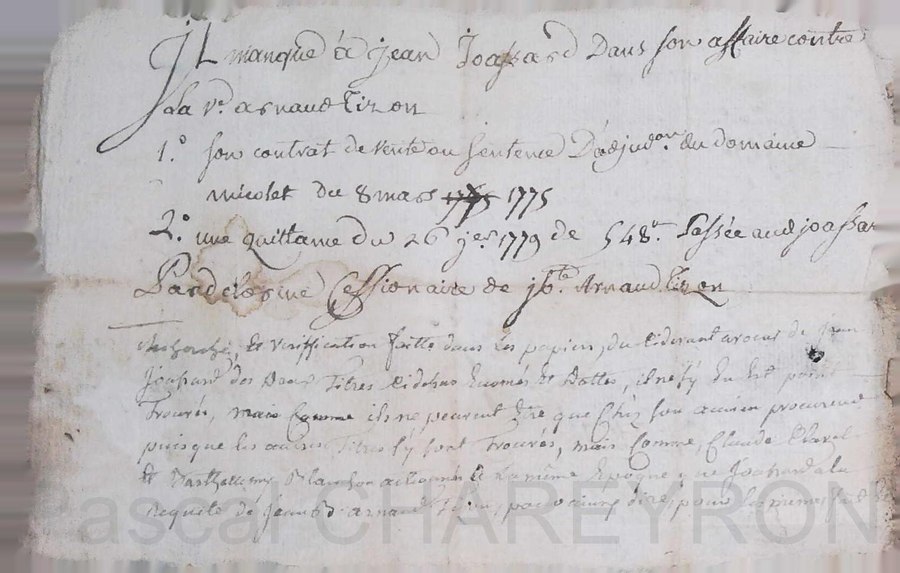 IL manque à jean Joassard Dans son affaire contre
La Ve. arnaud tizon
1.° son contrat de vente ou sentence D'adjudon. du domaine
micolet du 8 mars 1775 1775
2.° une quittance du 26 jer. 1779 de 548tt. Passée aud joassar
Par Cessionaire de jbte. Arnaud tizon
Recherche, et veriffication faitte dans les papiers, du Cidevant avocat de jean
Joassard des deux Titres cidessus et dattes, il ne s'y en est point
trouvés, mais Comme ils ne peuvent Etre que Chès son ancien procureur
puisque les autres Titres s'y sont trouvés, mais comme, Claude Clavel
et Barthellemy a la même Epoque que Joassard a la
Requête de jean B. arnaud Tizon,
Pascal CHAREYRON